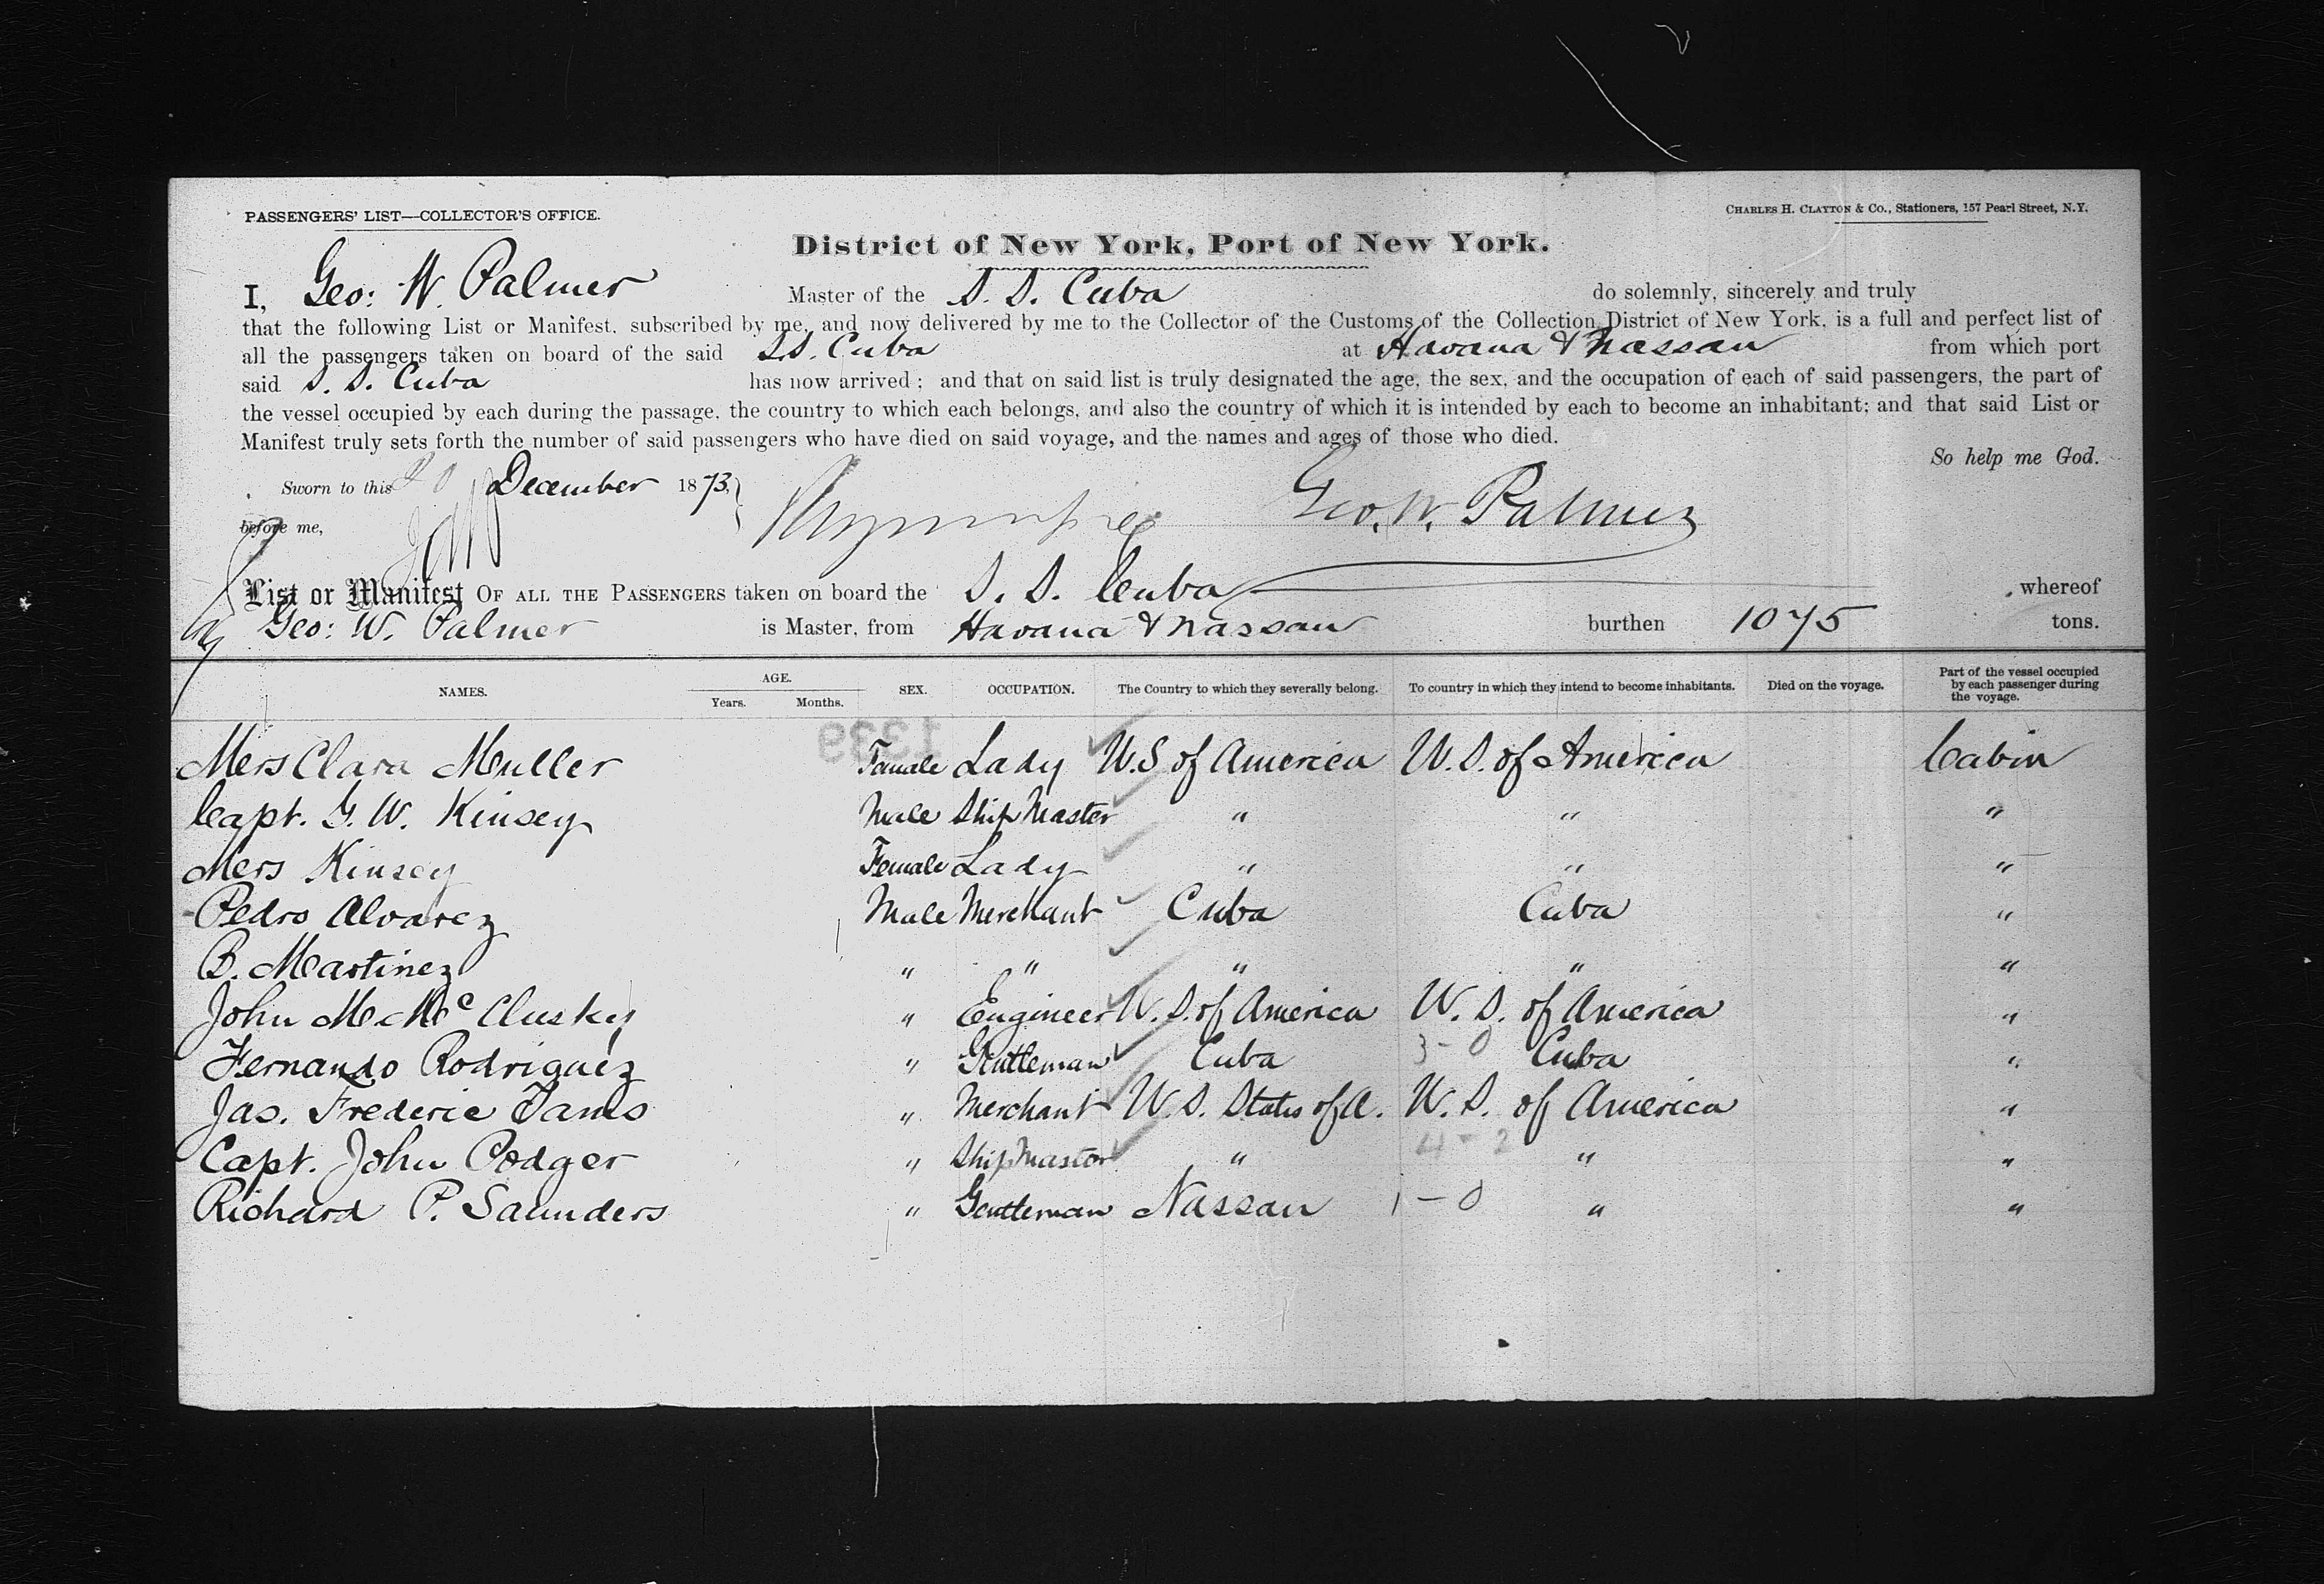 PASSENGERS' LIST—COLLECTOR'S OFFICE.
CHARLES H. CLAYTON & Co., Stationers, 157 Pearl Street, N.Y.
District of New York, Port of New York.
I, Geo: W. Palmer Master of the S. S. Cuba do solemnly, sincerely and truly
that the following List or Manifest, subscribed by me, and now delivered by me to the Collector of the Customs of the Collection District of New York, is a full and perfect list of
all the passengers taken on board of the said S.S. Cuba at Havana & Nassau from which port
said S. S. Cuba has now arrived; and that on said list is truly designated the age, the sex, and the occupation of each of said passengers, the part of
the vessel occupied by each during the passage, the country to which each belongs, and also the country of which it is intended by each to become an inhabitant; and that said List or
Manifest truly sets forth the number of said passengers who have died on said voyage, and the names and ages of those who died.
So help me God.
Sworn to this December 1873,
before me, Geo. W. Palmer
List or Manifest OF ALL THE PASSENGERS taken on board the S. S. Cuba whereof
Geo: W. Palmer is Master, from Havana & Nassau burthen 1075 tons.
NAMES. AGE. Years. Months. SEX. OCCUPATION. The Country to which they severally belong. To country in which they intend to become inhabitants. Died on the voyage. Part of the vessel occupied by each passenger during the voyage.
1339
Mers Clara Muller Female Lady U.S of America U.S. of America Cabin
Capt. G. W. Kinsey Male Ship Master " " "
Mers Kinsey Female Lady " " "
Pedro Alvarez Male Merchant Cuba Cuba "
B. Martinez " " " " "
John Mc Cluskey " Engineer U.S. of America U. S. of America "
Fernando Rodriguez " Gentleman Cuba 3-0 Cuba "
Jas. Frederic " Merchant U. S. States of A. U. S. of America "
Capt. John Podger " Ship Master " 4-2 " "
Richard P. Saunders " Gentleman Nassau 1-0 " "